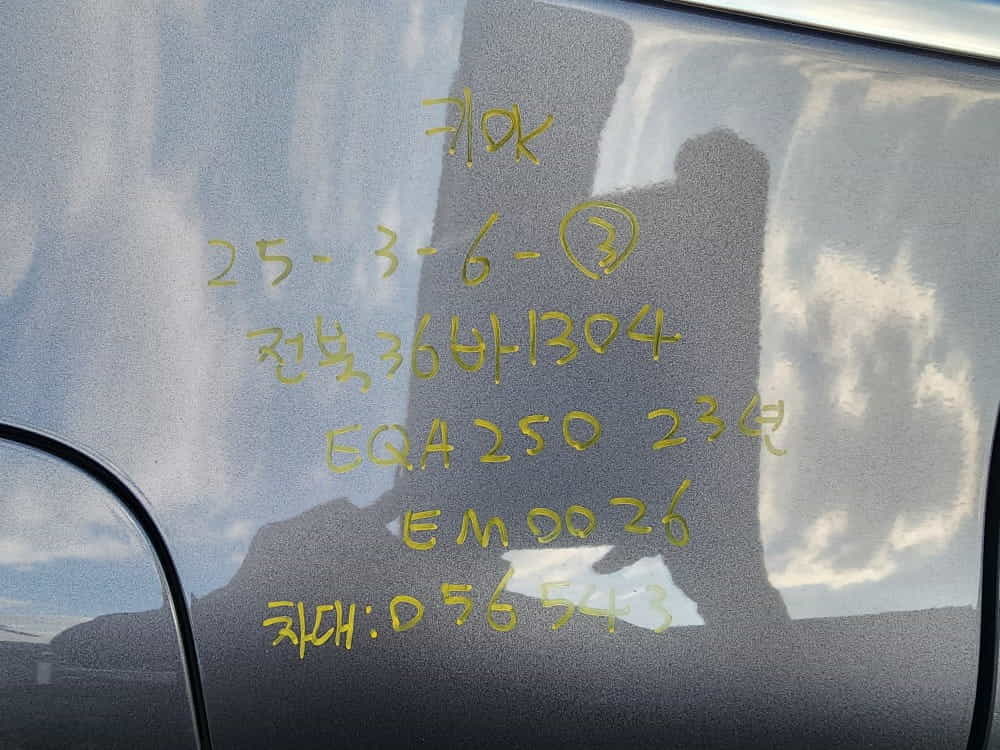 키OK
25-3-6-③
전북36바1304
EQA250 23년
EM0026
차대:056543